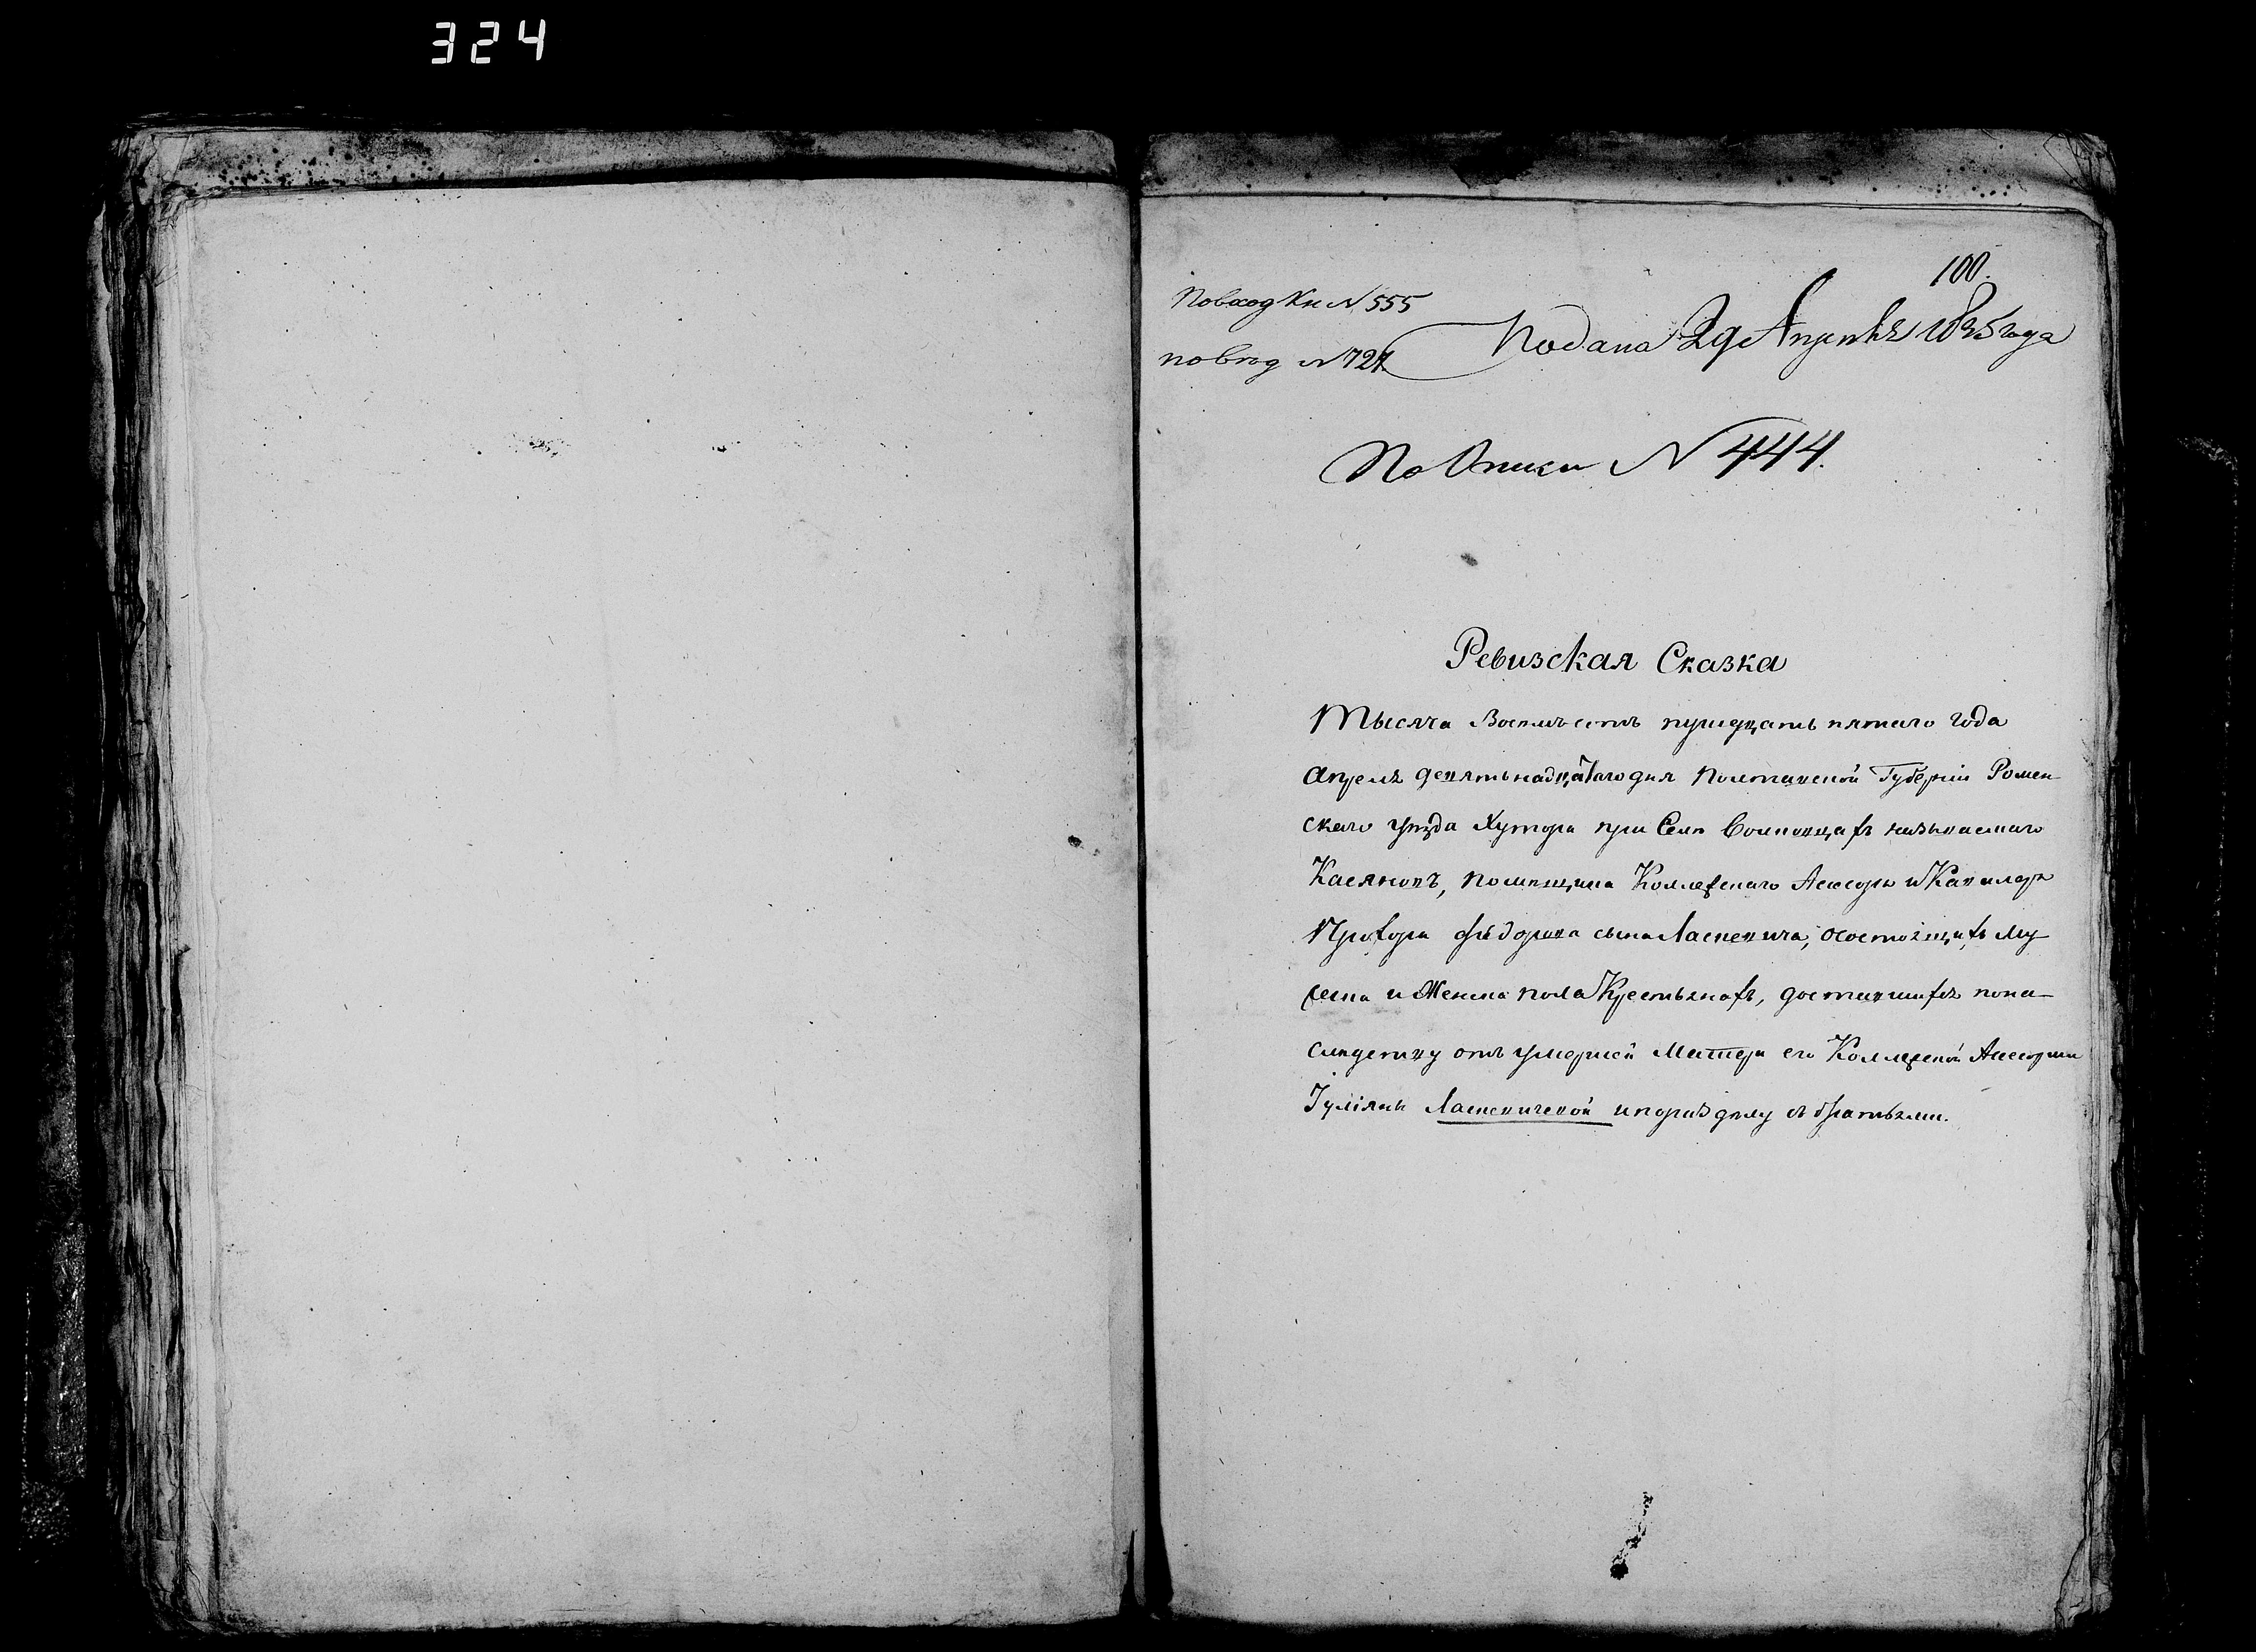 324
100.
По вход Кн № 555
Подана 29 Апреля 1835 года
по вѣд № 727
По Описи № 444.
Ревизская Сказка
Тысяча Восемьсотъ тридцать пятаго года
Апреля девятьнадцатаго дня Полтавской Губернии Ромен-
скаго уѣзда Хутора при Селѣ называемаго
Касяновъ, помѣщика Коллежскаго Асессора и Кавалера
Прохора Фѣдорова сына Ласкевича, о состоящихъ Му
жеска и Женска пола Крестьянахъ, доставшихся по на-
слѣдству отъ умершей Матери его Коллежской Асессорши
Іуліяны Ласкевичевой и по раздѣлу съ братьями.